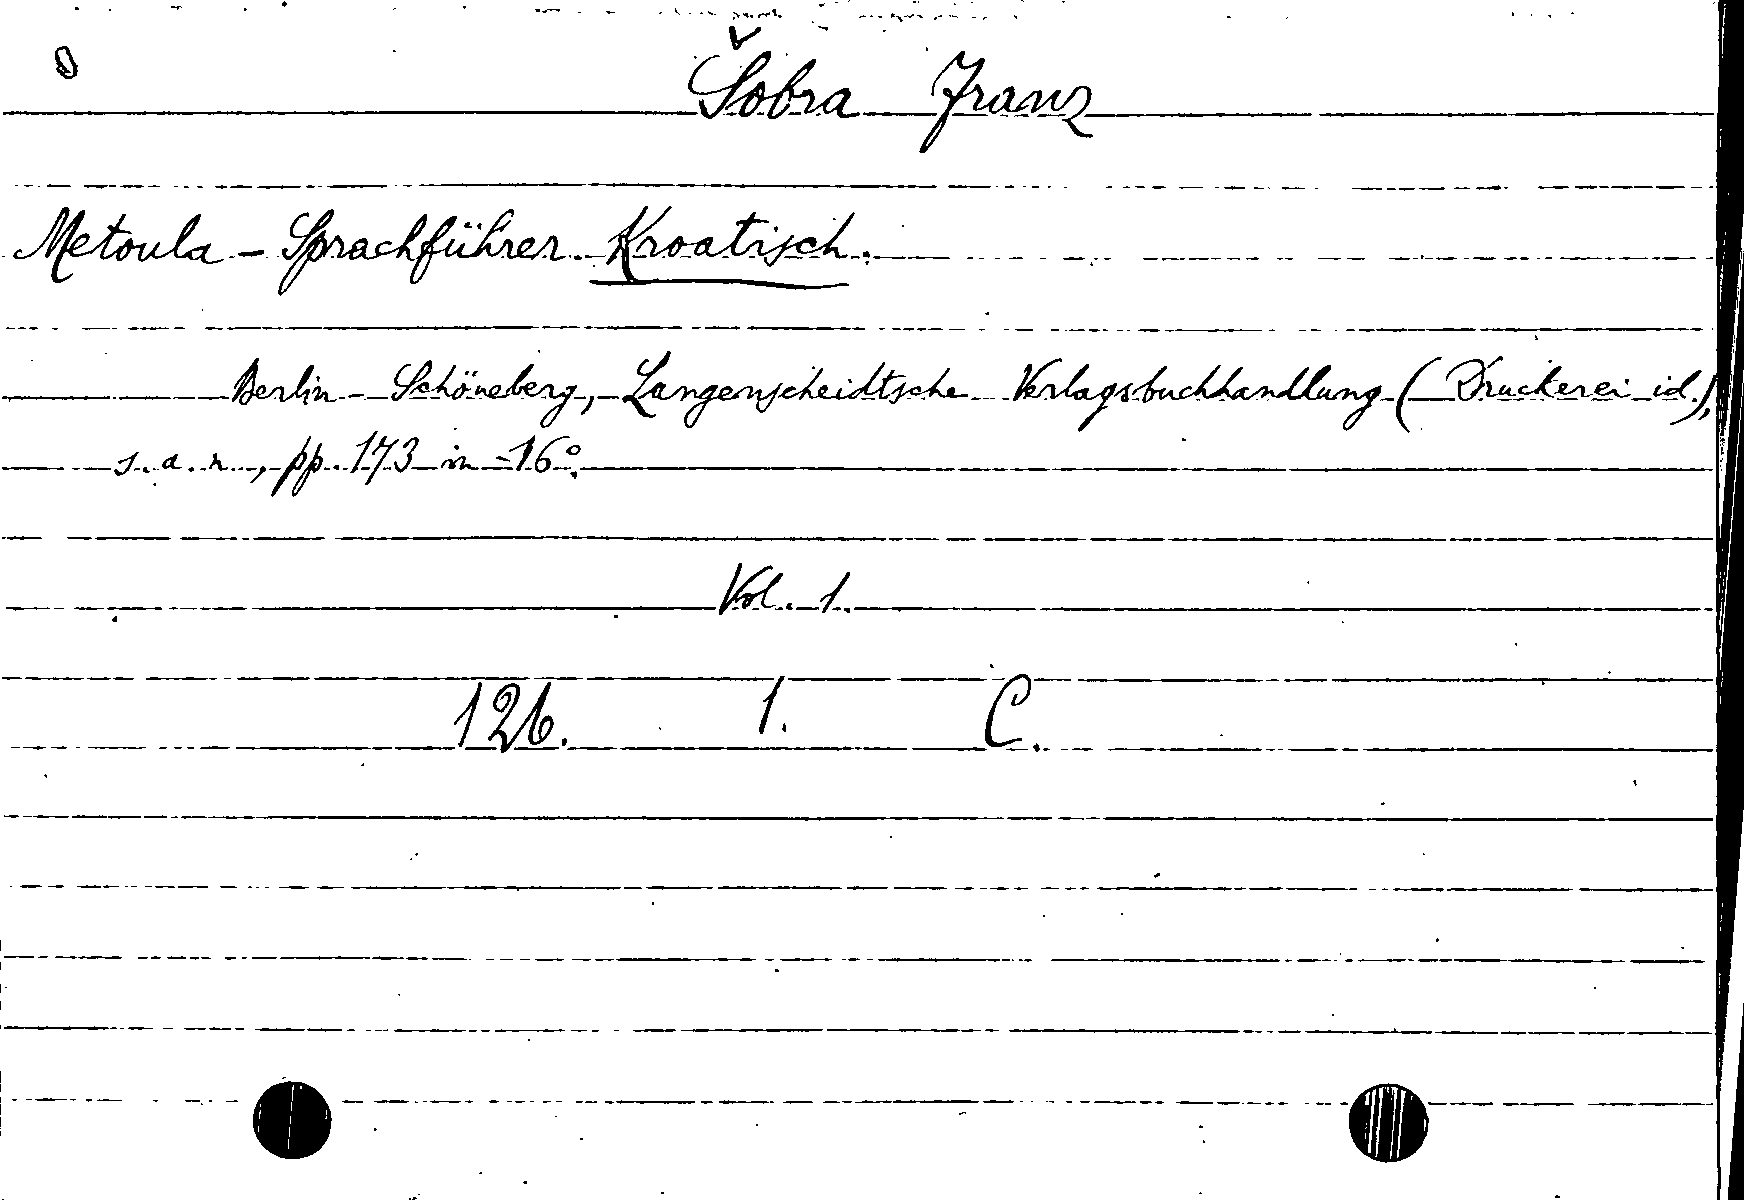 Šobra Franz
Metoula - Sprachführer. Kroatisch.
Berlin - Schöneberg, Langenscheidtsche Verlagsbuchhandlung (Druckerei id.),
s. a. n., pp. 173 in -16°.
Vol. 1.
126. 1. C.